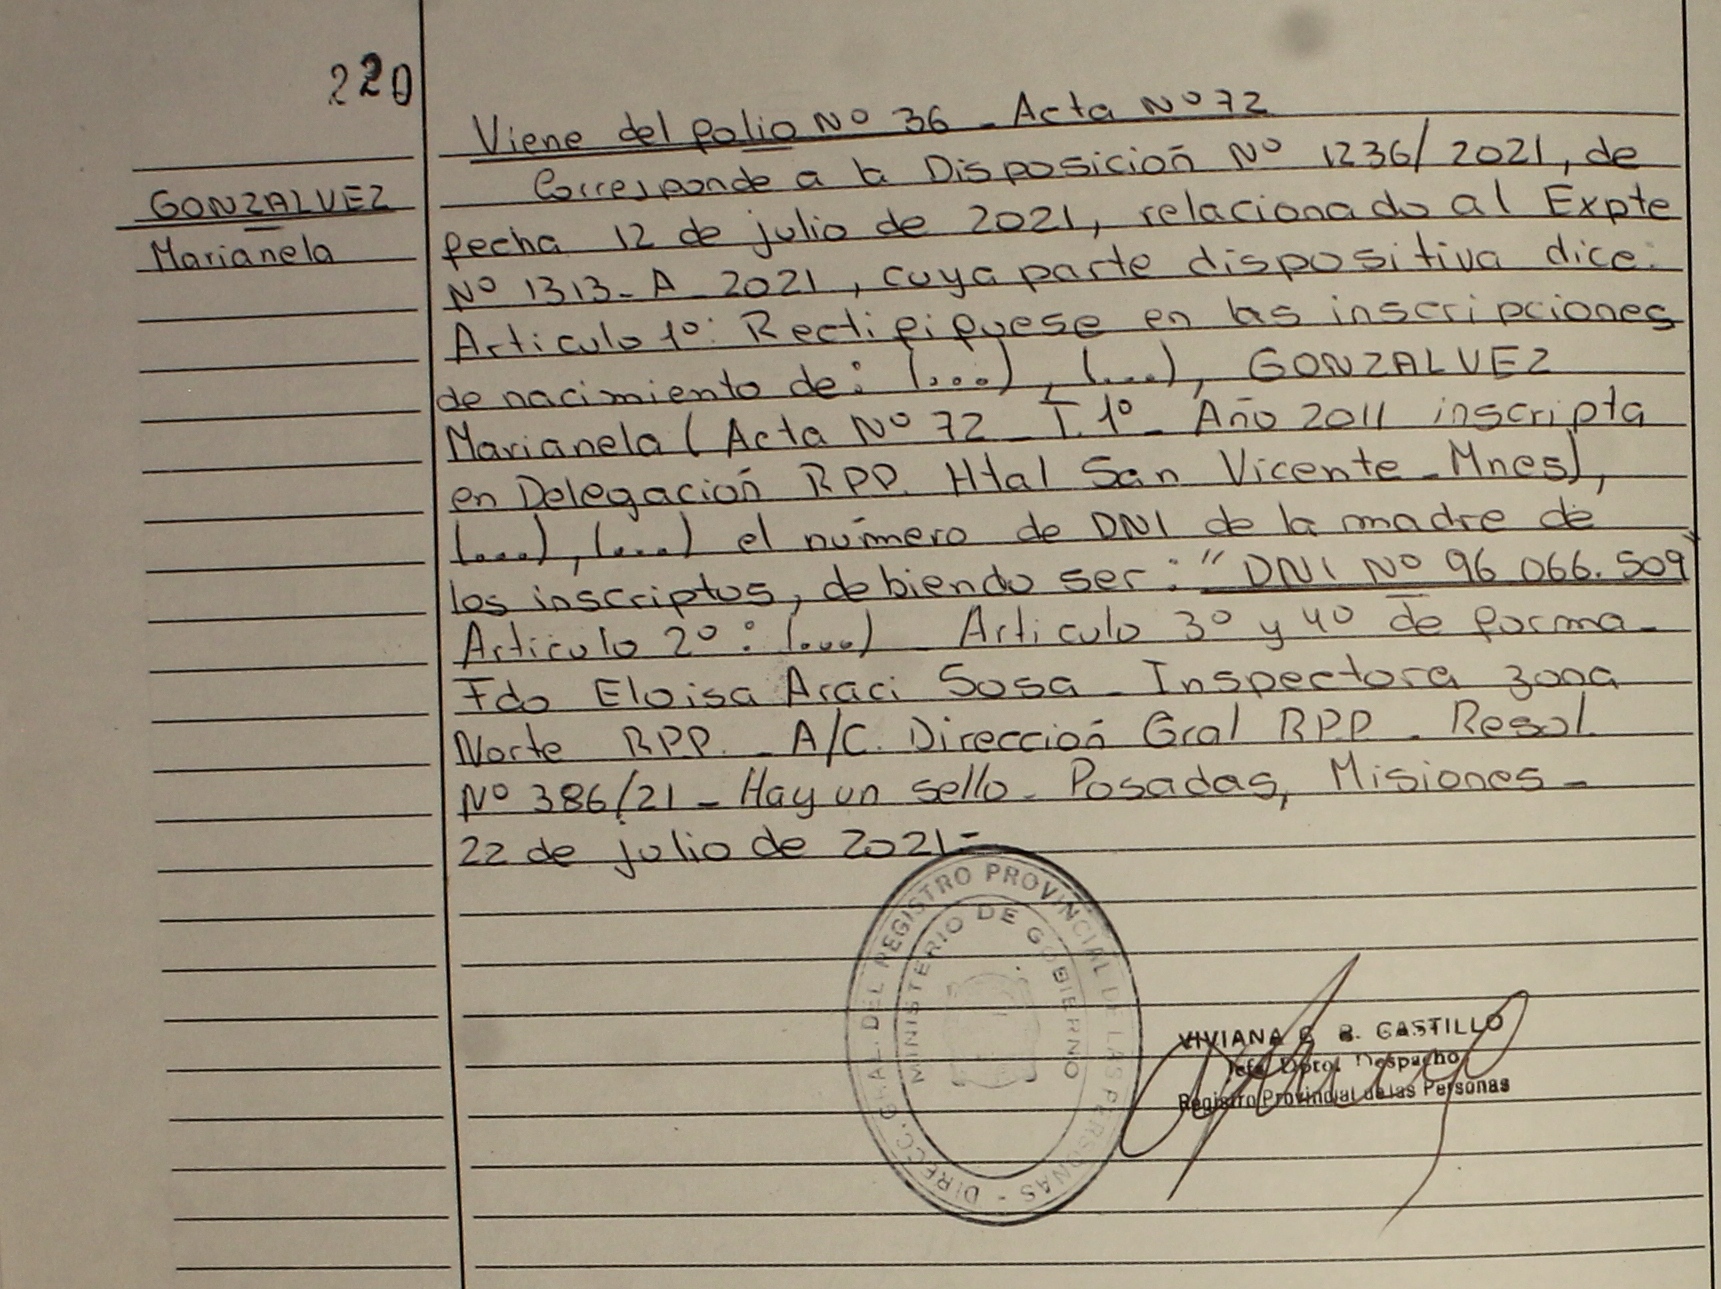 220
GONZALVEZ
Marianela
Viene del folio Nº 36 - Acta Nº 72
Corresponde a la Disposición Nº 1236/2021, de
fecha 12 de julio de 2021, relacionado al Expte
Nº 1313 - A - 2021, cuya parte dispositiva dice:
Articulo 1º: Rectififuese en las inscripciones
de nacimiento de: (...), (...), GONZALVEZ
Marianela (Acta Nº 72 - T. 1º - Año 2011 inscripta
en Delegación RPP. Htal San Vicente - Mnes),
(...), (...) el número de DNI de la madre de
los inscriptos, debiendo ser: "DNI Nº 96.066.509"
Articulo 2º: (...) - Articulo 3º y 4º de forma -
Fdo Eloisa Araci Sosa - Inspectora zona
Norte RPP. - A/C. Dirección Gral RPP - Resol.
Nº 386/21 - Hay un sello - Posadas, Misiones -
22 de julio de 2021 -
DIRECC. GRAL. DEL REGISTRO PROVINCIAL DE LAS PERSONAS -
MINISTERIO DE GOBIERNO
VIVIANA B. CASTILLO
Jefe Dpto. Despacho
Registro Provincial de las Personas